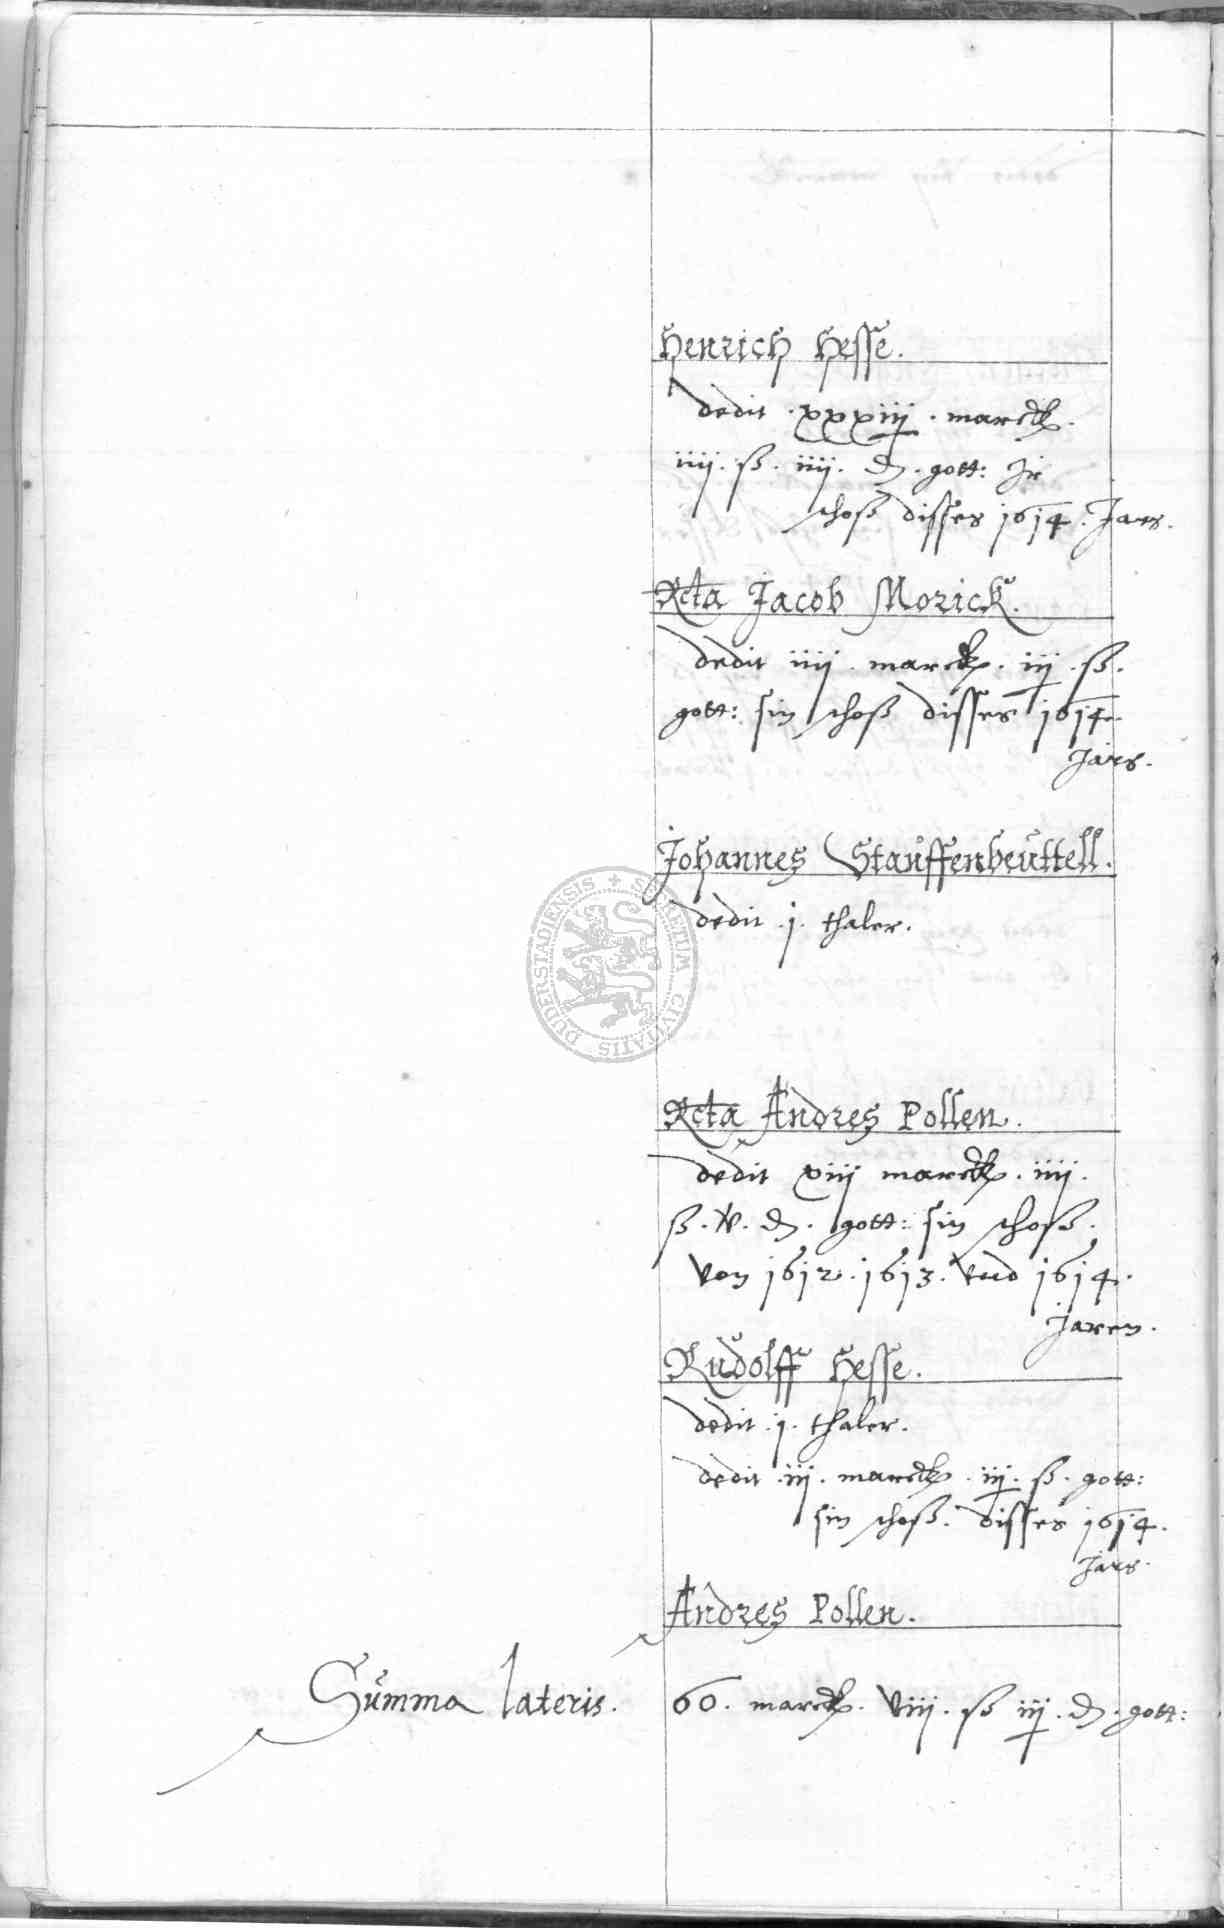 Henrich Hesse.
dedit . xxxiij . marck.
iiij . ß . iiij . d . gott: Jr
schoß disses 1614 . Jars.
Rcta Jacob Morick.
dedit iiij . marck . iij . ß .
gott: sin schoß disses 1614
Jars.
Johannes Stauffenbeuttell.
dedit . j . thaler.
Rcta Andres Pollen.
dedit xiij marck . iiij .
ß . v . d . gott: sin schoß .
von 1612 . 1613 . vnd 1614 .
Jaren.
Rudolff Hesse.
dedit . j . thaler.
dedit . iij . marck . iij . ß . gott:
sin schoß . disses 1614 .
Jars.
Andres Pollen.
Summa lateris. 60 . marck . viij . ß iij . d . gott:
SECRETUM CIVITATIS DUDERSTADIENSIS